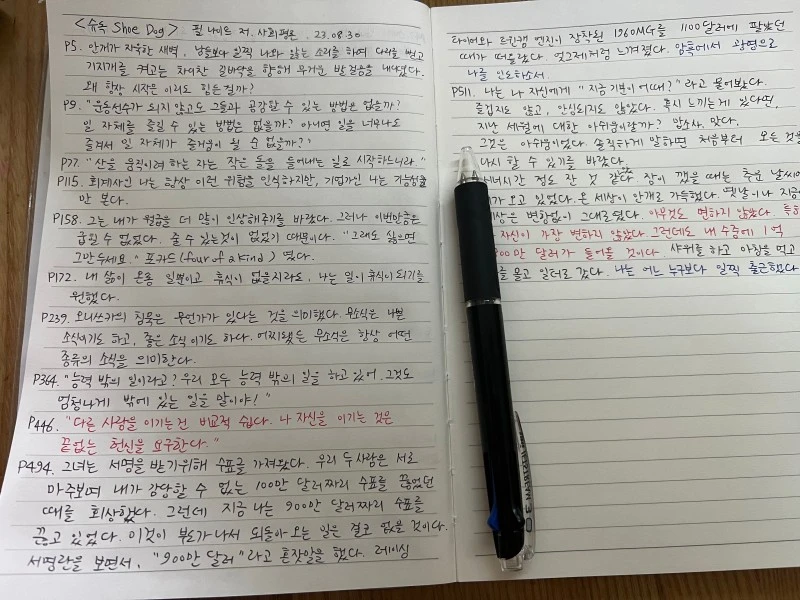 <슈독 Shoe Dog> 필 나이트 저. 사회평론. 23.08.30
P5. 안개가 자욱한 새벽, 남들보다 일찍 나와 앓는 소리를 하며 다리를 뻗고
기지개를 켜고는 차디찬 길바닥을 향해 무거운 발걸음을 내디뎠다.
왜 항상 시작은 이리도 힘든걸까?
P9. "운동선수가 되지 않고도 그들과 공감할 수 있는 방법은 없을까?
일 자체를 즐길 수 있는 방법은 없을까? 아니면 일을 너무나도
즐겨서 일 자체가 즐거움이 될 수 없을까?"
P77. "산을 움직이려 하는 자는 작은 돌을 들어내는 일로 시작하느니라."
P115. 회계사인 나는 항상 이런 위험을 인식하지만, 기업가인 나는 가능성을
만 본다.
P158. 그는 내가 월급을 더 많이 인상해주기를 바랐다. 그러나 이번만큼은
굽힐 수 없었다. 줄 수 있는 것이 없었기 때문이다. "그래도 싫으면
그만두세요." 포카드(four of a kind)였다.
P172. 내 삶이 온통 일뿐이고 휴식이 없을지라도, 나는 일이 휴식이 되기를
원했다.
P239. 오니쓰카의 침묵은 무언가가 있다는 것을 의미했다. 무소식은 나쁜
소식이기도 하고, 좋은 소식이기도 하다. 어찌됐든 무소식은 항상 어떤
종류의 소식을 의미한다.
P364. "능력 밖의 일이라고? 우리 모두 능력 밖의 일을 하고 있어. 그것도
엄청나게 밖에 있는 일을 말이야!"
P446. "다른 사람을 이기는건 비교적 쉽다. 나 자신을 이기는 것은
끝없는 헌신을 요구한다."
P494. 그녀는 서명을 받기위해 수표를 가져왔다. 우리 두사람은 서로
마주보며 내가 감당할 수 없는 100만 달러짜리 수표를 끊었던
때를 회상했다. 그런데 지금 나는 900만 달러짜리 수표를
끊고 있었다. 이것이 부도가 나서 되돌아 오는 일은 결코 없을 것이다.
서명란을 보면서, "900만 달러"라고 혼잣말을 했다. 레이싱
타이어와 트윈캠 엔진이 장착된 1960MG를 1100달러에 팔았던
때가 떠올랐다. 엊그제처럼 느껴졌다. 암흑에서 광명으로
나를 인도하소서.
P511. 나는 나 자신에게 "지금 기분이 어때?"라고 물어봤다.
즐겁지도 않고, 안심되지도 않았다. 혹시 느끼는게 있다면,
지난 세월에 대한 아쉬움이랄까? 맙소사. 맞다.
그것은 아쉬움이었다. 솔직하게 말하면 처음부터 모든 것을
다시 할 수 있기를 바랐다.
시간 정도 잔 것 같다. 잠이 깼을 때는 추운 날씨에
가 오고 있었다. 온 세상이 안개로 가득했다. 옛날이나 지금
세상은 변함없이 그대로였다. 아무것도 변하지 않았다. 특히
자신이 가장 변하지 않았다. 그런데도 내 수중에 1억
만 달러가 들어올 것이다. 샤워를 하고 아침을 먹고
를 몰고 일터로 갔다. 나는 어느 누구보다 일찍 출근했다